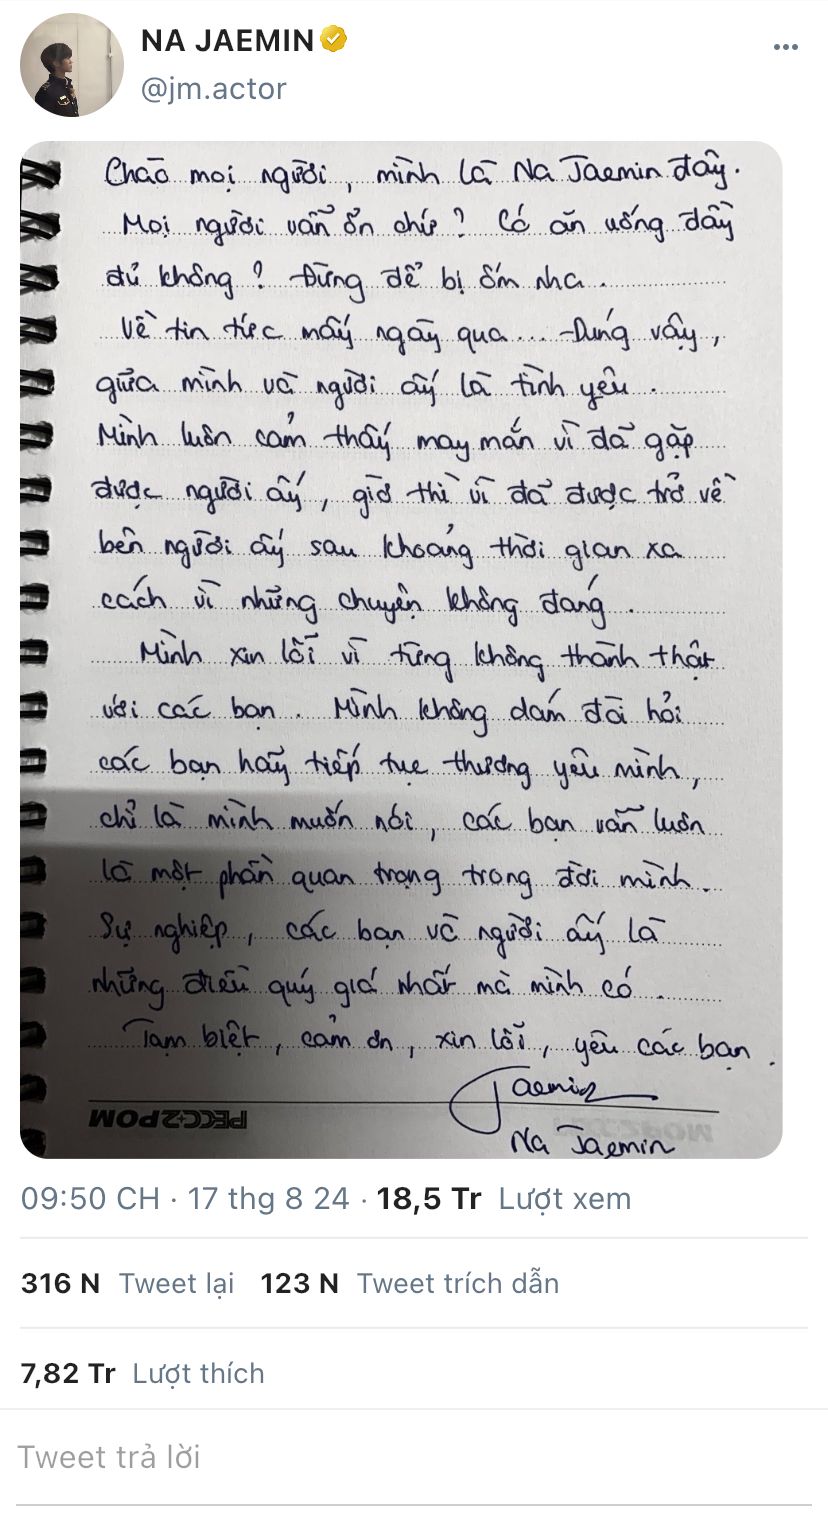 NA JAEMIN
@jm.actor
Chào mọi người, mình là Na Jaemin đây.
Mọi người vẫn ổn chứ? Có ăn uống đầy
đủ không? Đừng để bị ốm nha.
Về tin tức mấy ngày qua... Đúng vậy,
giữa mình và người ấy là tình yêu.
Mình luôn cảm thấy may mắn vì đã gặp
được người ấy, giờ thì vì đã được trở về
bên người ấy sau khoảng thời gian xa
cách vì những chuyện không đáng.
Mình xin lỗi vì từng không thành thật
với các bạn. Mình không dám đòi hỏi
các bạn hãy tiếp tục thương yêu mình,
chỉ là mình muốn nói, các bạn vẫn luôn
là một phần quan trọng trong đời mình.
Sự nghiệp, các bạn và người ấy là
những điều quý giá nhất mà mình có.
Tạm biệt, cảm ơn, xin lỗi, yêu các bạn.
Jaemin
Na Jaemin
09:50 CH · 17 thg 8 24 · 18,5 Tr Lượt xem
316 N Tweet lại 123 N Tweet trích dẫn
7,82 Tr Lượt thích
Tweet trả lời